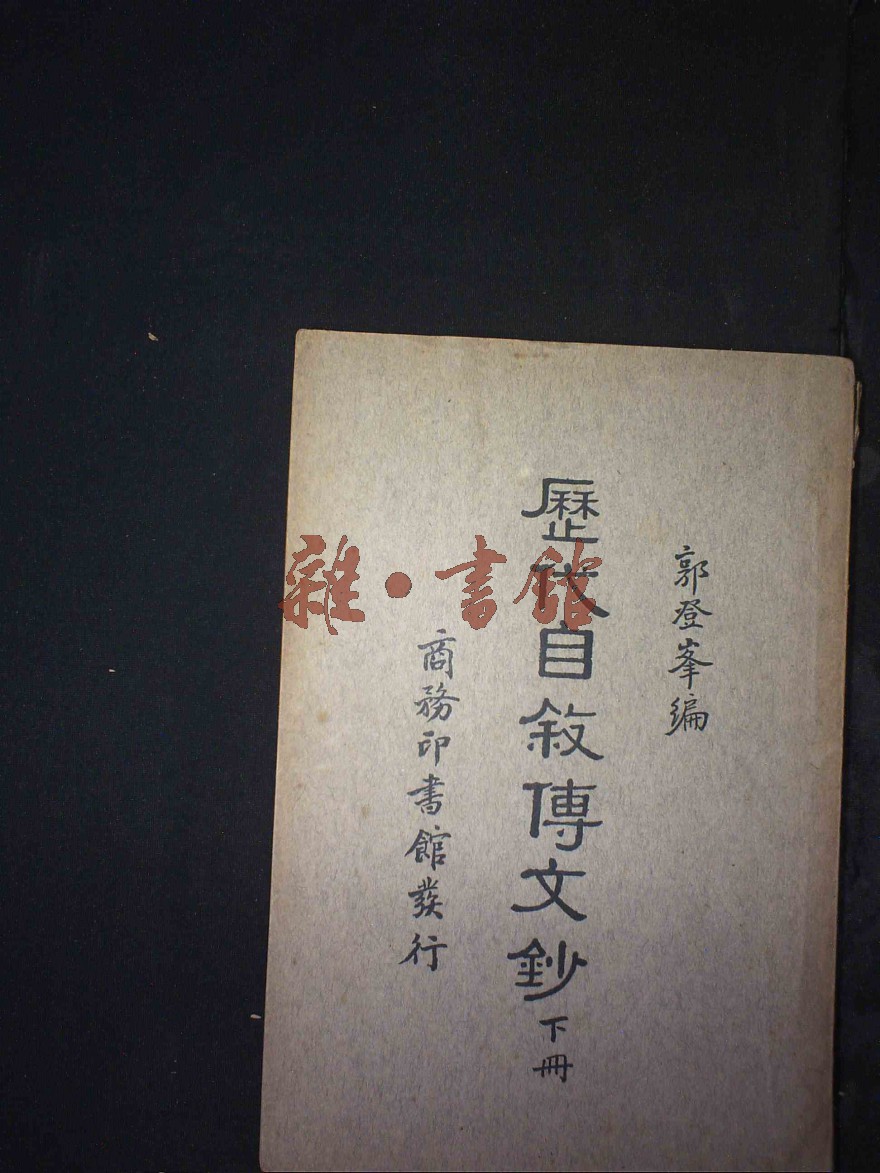 郭登峯編
歷代自敘傳文鈔 下冊
商務印書館發行
雜·書館